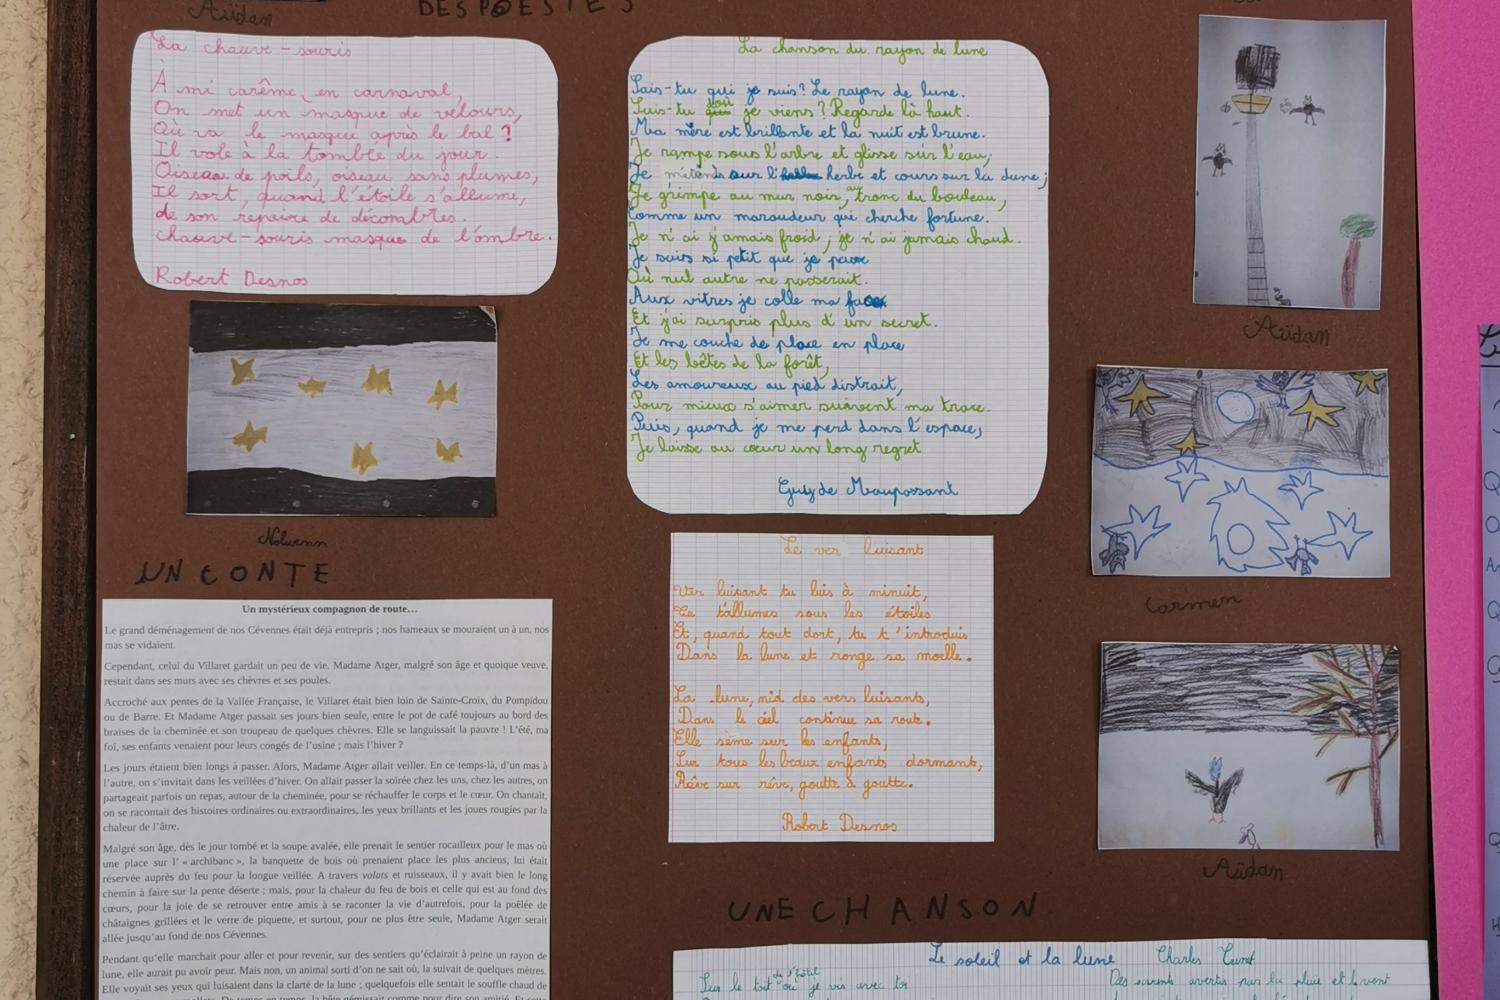 Aüdan
DES POESIES
La chauve-souris
À mi carême, en carnaval,
On met un masque de velours,
Où va le masque après le bal ?
Il vole à la tombée du jour.
Oiseau de poils, oiseau sans plumes,
Il sort, quand l'étoile s'allume,
de son repaire de décombres.
chauve-souris masque de l'ombre.
Robert Desnos
Nolwenn
La chanson du rayon de lune
Sais-tu qui je suis? Le rayon de lune.
Sais-tu d'où je viens? Regarde là haut.
Ma mère est brillante et la nuit est brune.
Je rampe sous l'arbre et glisse sur l'eau;
Je m'étends sur l'herbe et cours sur la dune;
Je grimpe au mur noir, au tronc du bouleau,
Comme un maraudeur qui cherche fortune.
Je n'ai j'amais froid, je n'ai jamais chaud.
Je suis si petit que je passe
Où nul autre ne passerait.
Aux vitres je colle ma face
Et j'ai surpris plus d'un secret.
Je me couche de place en place
Et les bêtes de la forêt,
Les amoureux au pied distrait,
Pour mieux s'aimer suivent ma trace.
Puis, quand je me perd dans l'espace,
Je laisse au cœur un long regret
Guy de Maupassant
Le ver luisant
Ver luisant tu luis à minuit,
Tu t'allumes sous les étoiles
Et, quand tout dort, tu t'introduis
Dans la lune et ronge sa moelle.
La lune, nid des vers luisants,
Dans le ciel continue sa route.
Elle sème sur les enfants,
Sur tous les beaux enfants dormant,
Rêve sur rêve, goutte à goutte.
Robert Desnos
Aüdan
Carmen
Aüdan
UN CONTE
Un mystérieux compagnon de route…
Le grand déménagement de nos Cévennes était déjà entrepris ; nos hameaux se mouraient un à un, nos
mas se vidaient.
Cependant, celui du Villaret gardait un peu de vie. Madame Atger, malgré son âge et quoique veuve,
restait dans ses murs avec ses chèvres et ses poules.
Accroché aux pentes de la Vallée Française, le Villaret était bien loin de Sainte-Croix, du Pompidou
ou de Barre. Et Madame Atger passait ses jours bien seule, entre le pot de café toujours au bord des
braises de la cheminée et son troupeau de quelques chèvres. Elle se languissait la pauvre ! L'été, ma
foi, ses enfants venaient pour leurs congés de l'usine ; mais l'hiver ?
Les jours étaient bien longs à passer. Alors, Madame Atger allait veiller. En ce temps-là, d'un mas à
l'autre, on s'invitait dans les veillées d'hiver. On allait passer la soirée chez les uns, chez les autres, on
partageait parfois un repas, autour de la cheminée, pour se réchauffer le corps et le cœur. On chantait,
on se racontait des histoires ordinaires ou extraordinaires, les yeux brillants et les joues rougies par la
chaleur de l'âtre.
Malgré son âge, dès le jour tombé et la soupe avalée, elle prenait le sentier rocailleux pour le mas où
une place sur l' « archibanc », la banquette de bois où prenaient place les plus anciens, lui était
réservée auprès du feu pour la longue veillée. A travers valats et ruisseaux, il y avait bien le long
chemin à faire sur la pente déserte ; mais, pour la chaleur du feu de bois et celle qui est au fond des
cœurs, pour la joie de se retrouver entre amis à se raconter la vie d'autrefois, pour la poêlée de
châtaignes grillées et le verre de piquette, et surtout, pour ne plus être seule, Madame Atger serait
allée jusqu'au fond de nos Cévennes.
Pendant qu'elle marchait pour aller et pour revenir, sur des sentiers qu'éclairait à peine un rayon de
lune, elle aurait pu avoir peur. Mais non, un animal sorti d'on ne sait où, la suivait de quelques mètres.
Elle voyait ses yeux qui luisaient dans la clarté de la lune ; quelquefois elle sentait le souffle chaud de
UNE CHANSON
Le soleil et la lune Charles Trenet
Sur le toit de l'hôtel où je vis avec toi
Des savants avertis par la pluie et le vent